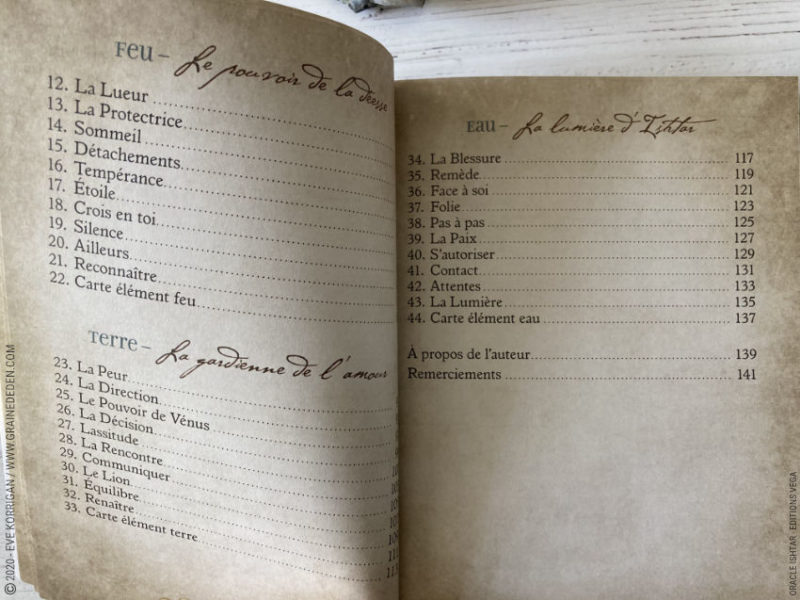 Feu – Le pouvoir de la déesse
12. La Lueur
13. La Protectrice
14. Sommeil
15. Détachements
16. Tempérance
17. Étoile
18. Crois en toi
19. Silence
20. Ailleurs
21. Reconnaître
22. Carte élément feu
Terre – La gardienne de l'amour
23. La Peur
24. La Direction
25. Le Pouvoir de Vénus
26. La Décision
27. Lassitude
28. La Rencontre
29. Communiquer
30. Le Lion
31. Équilibre
32. Renaître
33. Carte élément terre
Eau – La lumière d'Ishtar
34. La Blessure 117
35. Remède 119
36. Face à soi 121
37. Folie 123
38. Pas à pas 125
39. La Paix 127
40. S'autoriser 129
41. Contact 131
42. Attentes 133
43. La Lumière 135
44. Carte élément eau 137
À propos de l'auteur 139
Remerciements 141
© 2020 - EVE KORRIGAN / WWW.GRAINEDEDEN.COM
ORACLE ISHTAR . EDITIONS VEGA